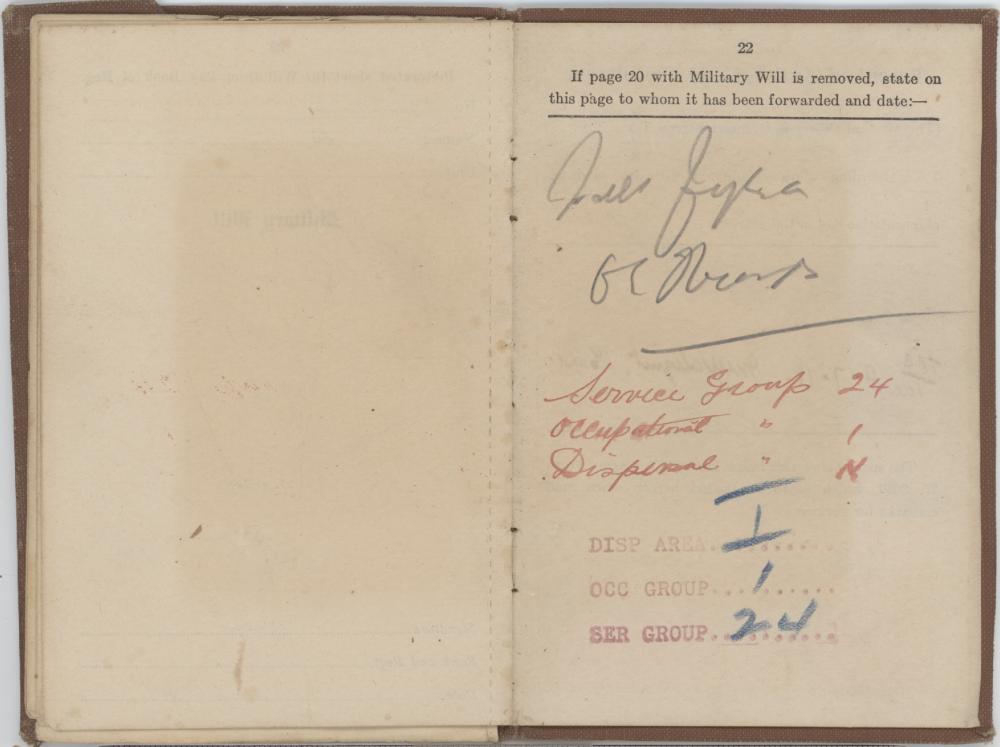 22
If page 20 with Military Will is removed, state on
this page to whom it has been forwarded and date:—
OC Records
Service Group 24
Occupational " 1
Dispersal "
DISP AREA. I
OCC GROUP... 1
SER GROUP. 24